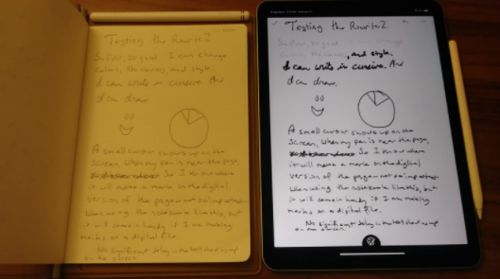 Testing the Rewrite2
So far, so good I can change
Colors, thickness, and style,
I can write in cursive. And
I can draw.
A small cursor shows up on the
Screen, when my pen is near the page,
So I know where
it will make a mark on the digital
version of the page
When using the notebook
it will come in handy if I am making
marks on a digital file.
No significant delay in mark shows up
on the screen
Testing the Rewrite2
So far, so good change
Colors, thickness, and style,
I can write in cursive. And
I can draw.
A small cursor shows up on the
Screen, when my pen is near the page,
So I know where
it will make a mark on the digital
version of the page
When using the notebook but
it will come in handy if I am making
marks on a digital file.
No significant delay in mark shows up
on the screen